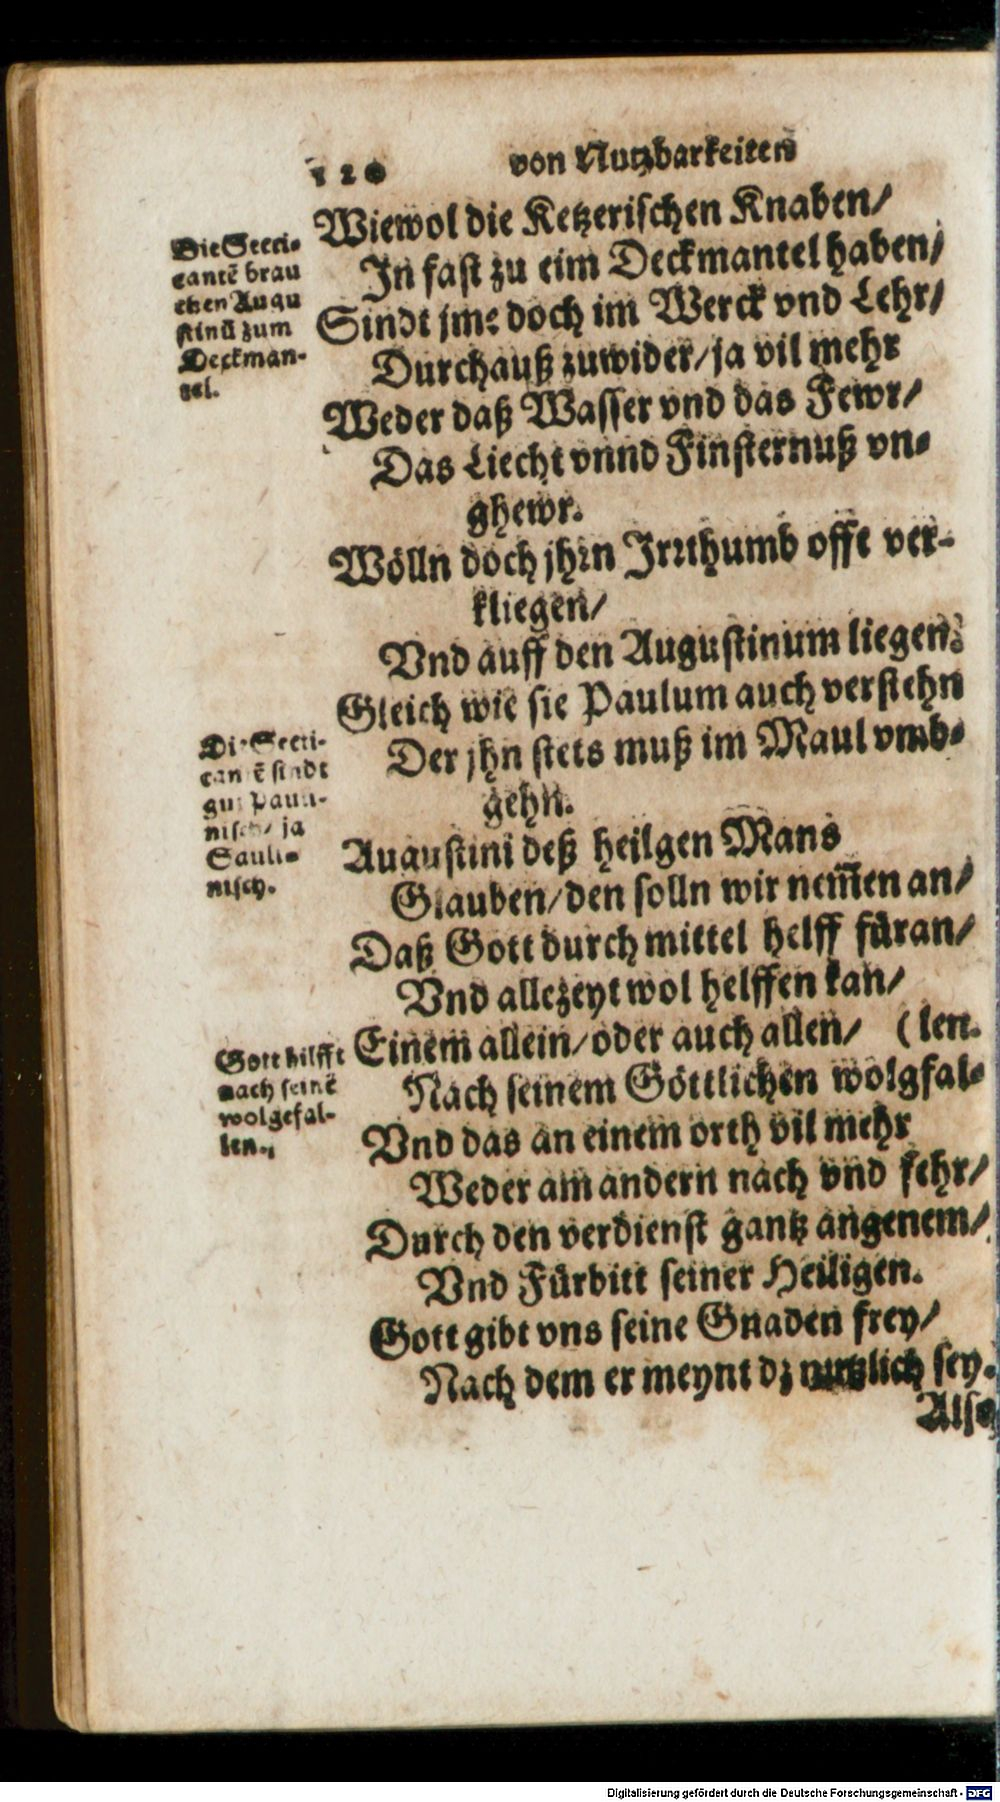 120 von Nutzbarkeiten
Wiewol die Ketzerischen Knaben/
In fast zu eim Deckmantel haben/
Sindt jme doch im Werck vnd Lehr/
Durchauß zuwider/ ja vil mehr
Weder daß Wasser vnd das Fewr/
Das Liecht vnnd Finsternuß vn-
ghewr.
Wölln doch jhrn Irrthumb offt ver-
kliegen/
Vnd auff den Augustinum liegen.
Gleich wie sie Paulum auch verstehn
Der jhn stets muß im Maul vmb-
gehn.
Augustini deß heilgen Mans
Glauben/ den solln wir nem̃en an/
Daß Gott durch mittel helff füran/
Vnd allezeyt wol helffen kan/
Einem allein/ oder auch allen/ (len.
Nach seinem Göttlichen wolgfal-
Vnd das an einem orth vil mehr
Weder am andern nach vnd fehr/
Durch den verdienst gantz angenem/
Vnd Fürbitt seiner Heiligen.
Gott gibt vns seine Gnaden frey/
Nach dem er meynt dz nutzlich sey.
Also
Die Secti-
cantē brau
chen Augu
stinū zum
Deckman-
tel.
Die Secti-
cantē sindt
gut Pauli-
nisch/ ja
Sauli-
nisch.
Gott hilfft
nach seinē
wolgefal-
len.
Digitalisierung gefördert durch die Deutsche Forschungsgemeinschaft - DFG